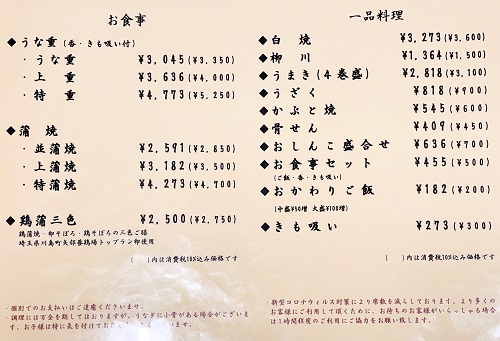 お食事
◆うな重(香・きも吸い付)
・うな重 ¥3,045(¥3,350)
・上 重 ¥3,636(¥4,000)
・特 重 ¥4,773(¥5,250)
◆蒲 焼
・並蒲焼 ¥2,591(¥2,850)
・上蒲焼 ¥3,182(¥3,500)
・特蒲焼 ¥4,273(¥4,700)
◆鶏蒲三色 ¥2,500(¥2,750)
鶏蒲焼・卵そぼろ・鶏そぼろの三色ご膳
埼玉県川島町矢部養鶏場トップラン卵使用
( )内は消費税10%込み価格です
・個別でのお支払いはご遠慮くださいませ。
・調理には万全を期しておりますが、うなぎに小骨がある場合がございま
す。お子様は特に気を付けてお
一品料理
◆白 焼 ¥3,273(¥3,600)
◆柳川 ¥1,364(¥1,500)
◆うまき(4巻盛) ¥2,818(¥3,100)
◆うざく ¥818(¥900)
◆かぶと焼 ¥545(¥600)
◆骨せん ¥409(¥450)
◆おしんこ盛合せ ¥636(¥700)
◆お食事セット ¥455(¥500)
(ご飯・香・きも吸い)
◆おかわりご飯 ¥182(¥200)
(中盛¥50増 大盛¥100増)
◆きも吸い ¥273(¥300)
( )内は消費税10%込み価格です
・新型コロナウィルス対策により席数を減らしております。より多くの
お客様にご利用して頂くために、お待ちのお客様がいらっしゃる場合
は1時間程度のご利用にご協力をお願い致します。